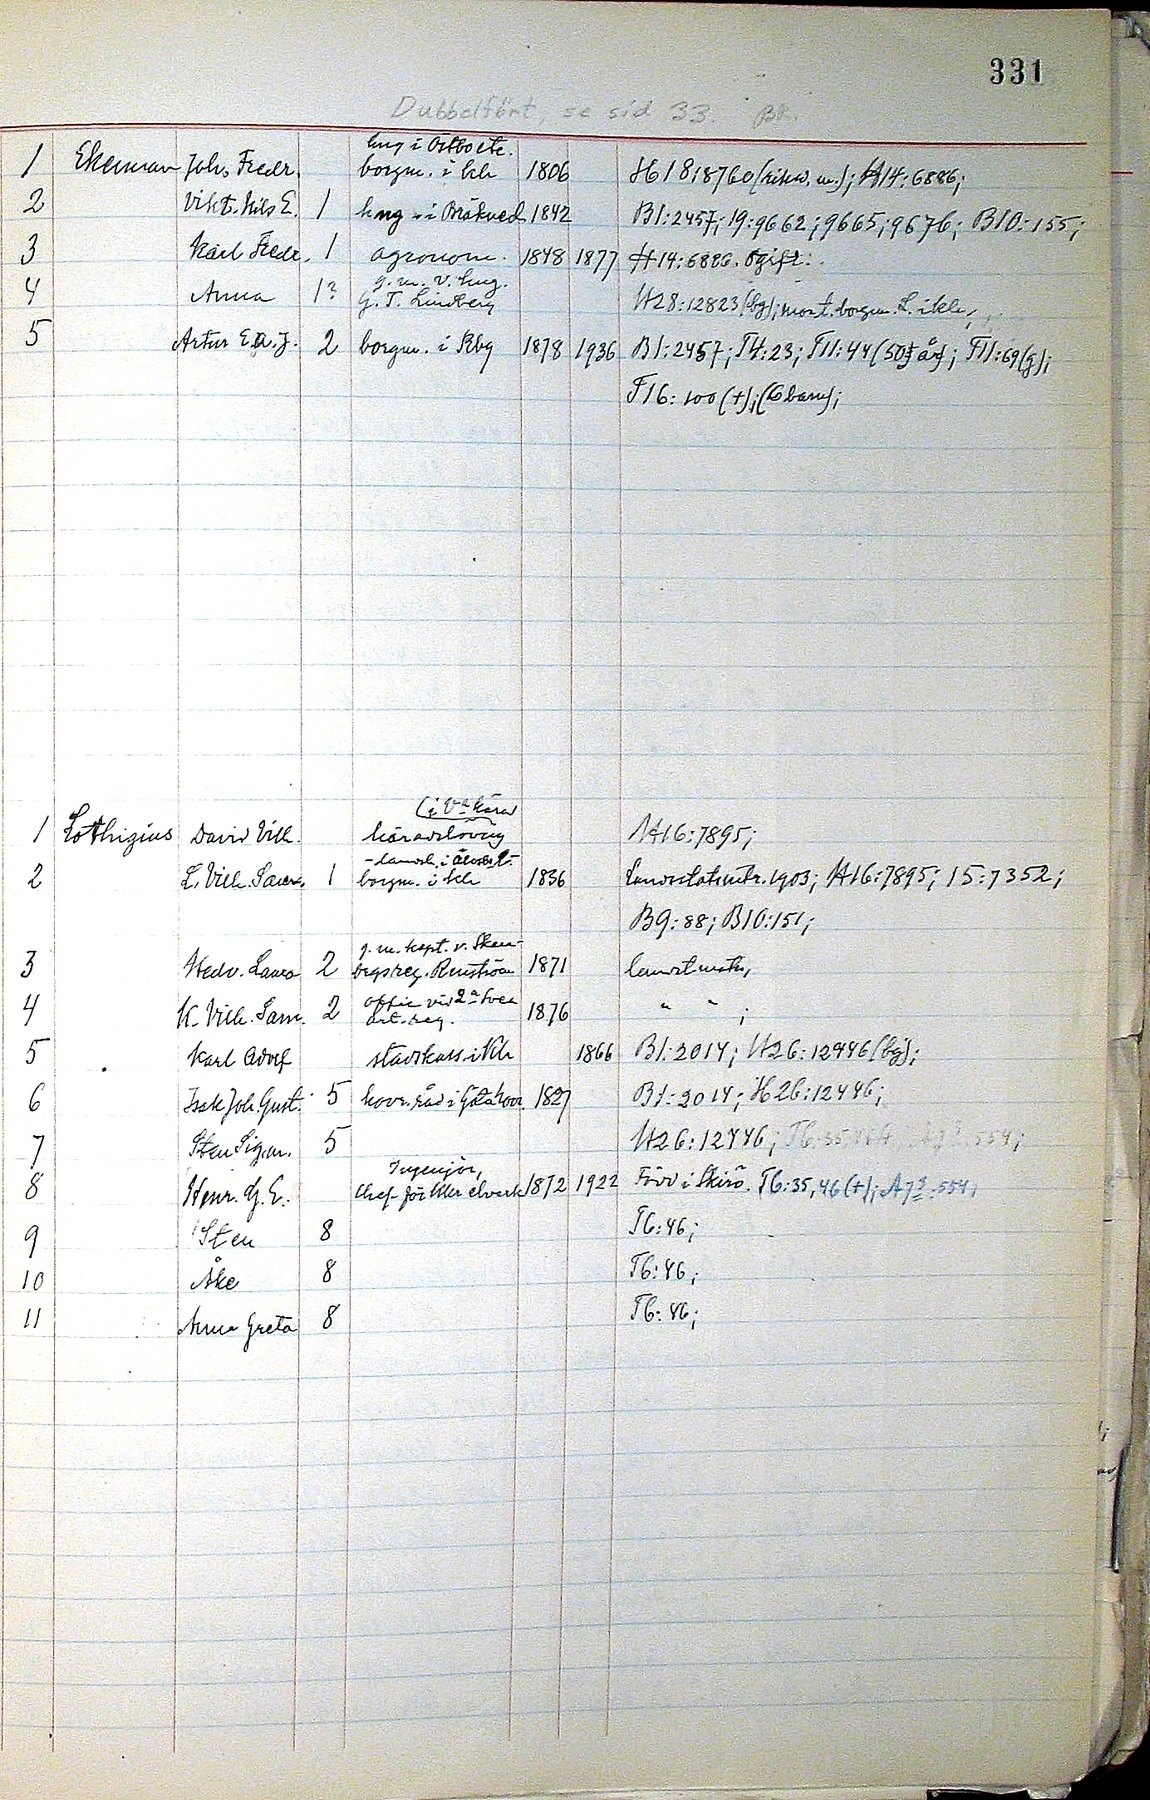 331
Dubbelfört, se sid 33. BR.
1 Ekerman Joh. Fredr. hng i Östbo etc. borgm. i kh 1806 H18:8760 (riksd. m.); H14:6886;
2 Vikt. Nils E. 1 hng i Bräkned 1842 B1:2457; 19:9662; 9665; 9676; B10:155;
3 Karl Fredr. 1 agronom. 1848 1877 H14:6886. Ogift.
4 Anna 1? g. m. v. hng. G. T. Lindberg H28:12823 (bg); mor t. borgm. L. i kh;
5 Artur E. A. J. 2 borgm. i Rbg 1878 1936 B1:2457; T4:23; T11:44 (50 år); T11:69 (g);
T16:100 (+); (6 barn);
1 Lothigius David Vilh. häradshövding (i V-a härad H16:7895;
2 L. Vilh. Sam. 1 borgm. i kh 1836 Landsstatsmtr. 1903; H16:7895; 15:7352;
B9:88; B10:151;
3 Hedv. Laura 2 g. m. kapt. v. Skaraborgsreg. Renström 1871 landstmatr,
4 K. Vilh. Sam. 2 offic. vid 2a Svea Art. reg. 1876 " " ;
5 Karl Adolf stadskass. i Kh 1866 B1:2014; H26:12446 (bg);
6 Isak Joh. Gust. 5 hovr. råd i Göta hovr. 1827 B1:2014; H26:12446;
7 Sten Sigm. 5 H26:12446;
8 Henr. G. E. Ingenjör, Chef för Khr elverk 1872 1922 Född i Skirö. T6:35,46 (+); A7²:554;
9 Sten 8 T6:46;
10 Åke 8 T6:46;
11 Anna Greta 8 T6:46;